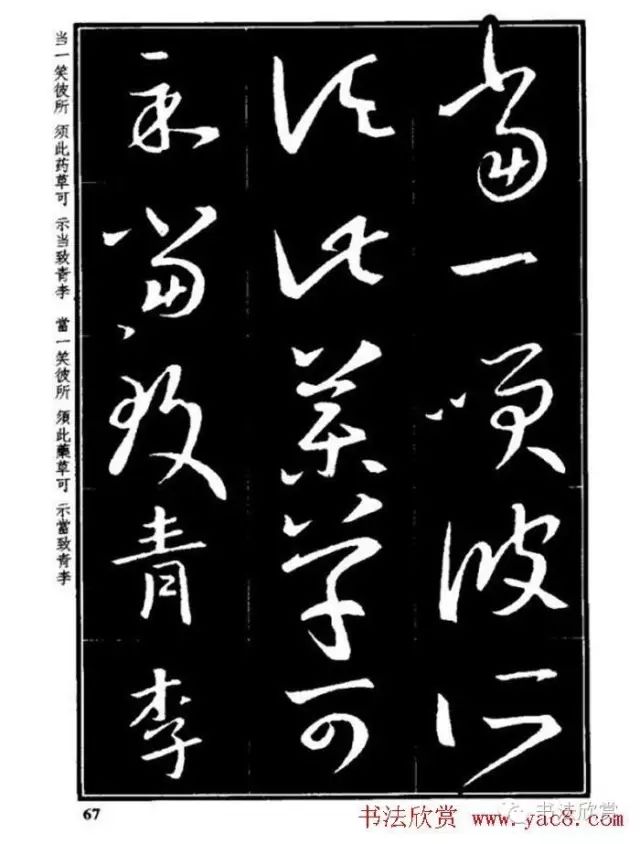 當一笑彼所
須此藥草可
示當致青李
当一笑彼所 须此药草可 示当致青李 當一笑彼所 須此藥草可 示當致青李
67
书法欣赏 www.yac8.com
书法欣赏